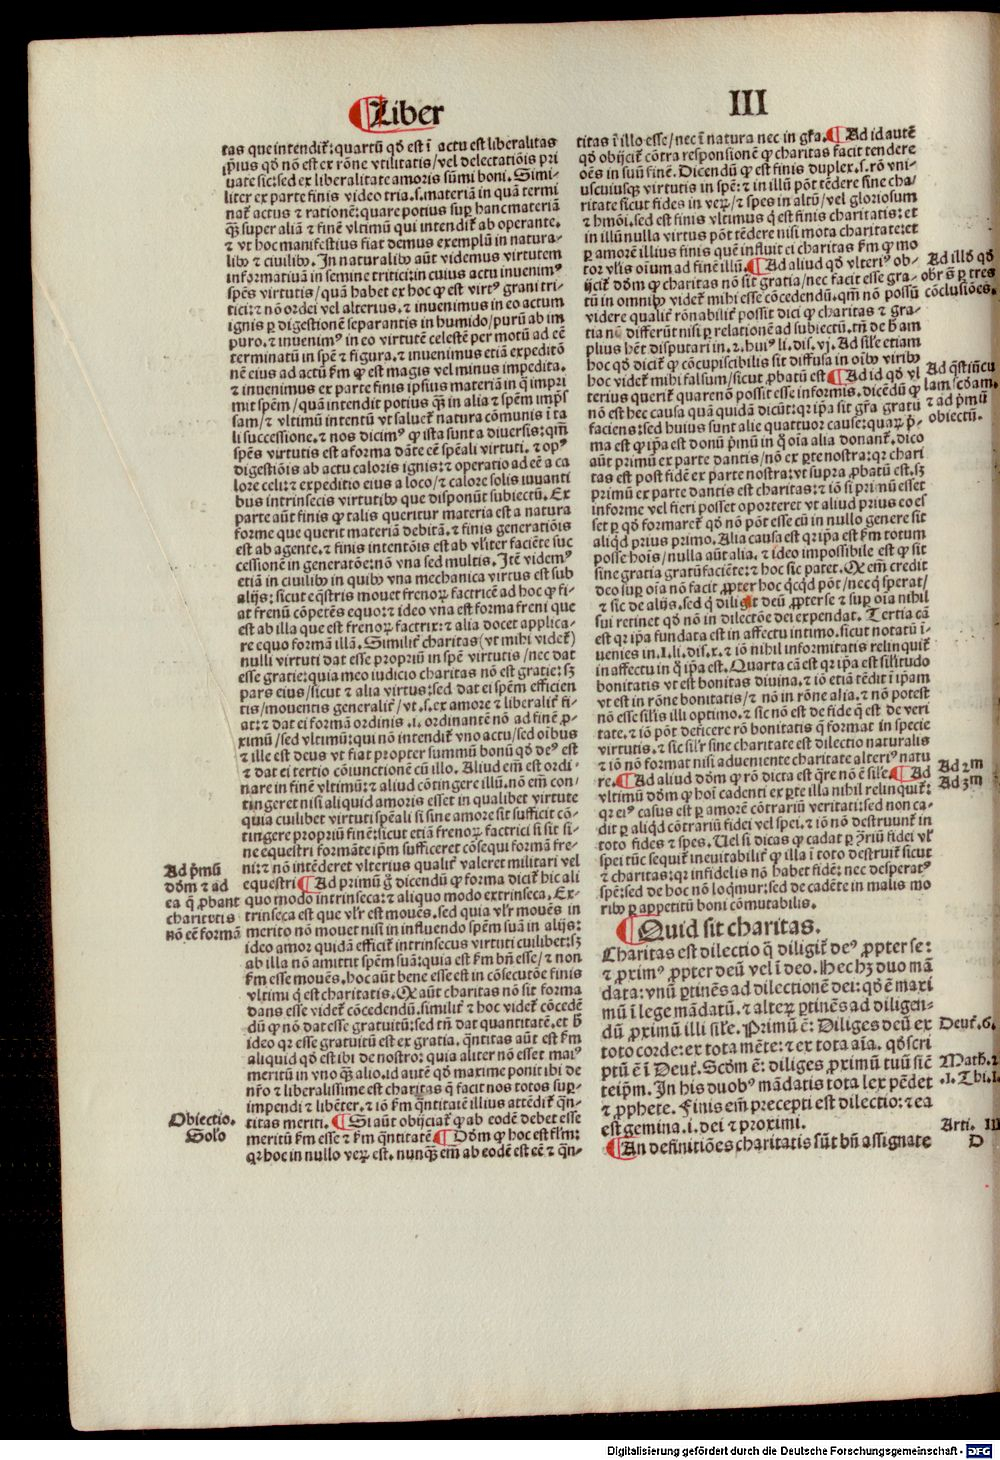 Liber
III
tas que intendit̃: quartũ qđ est ĩ actu est liberalitas
ip̃ius qđ nõ est ex rõne vtilitatis/ vel delectatiõis pri
uate sic: sed ex liberalitate amoris sũmi boni. Simi-
liter ex parte finis video tria. s. materiã in quã termi
nat̃ actus ⁊ rationẽ: quare potius sup hanc materiã
q̃ȝ super aliã ⁊ finẽ vltimũ qui intendit̃ ab operante.
⁊ vt hoc manifestius fiat demus exemplũ in natura-
libꝰ ⁊ ciuilibꝰ. In naturalibꝰ aũt videmus virtutem
informatiuã in semine tritici: in cuius actu inuenimꝰ
spẽs virtutis/ quã habet ex hoc ꝙ est virtꝰ grani tri-
tici: ⁊ nõ ordei vel alterius. ⁊ inuenimus in eo actum
ignis ꝑ digestionẽ separantis in humido/ purũ ab im
puro. ⁊ inuenimꝰ in eo virtutẽ celestẽ per motũ ad eẽ
terminatũ in spẽ ⁊ figura. ⁊ inuenimus etiã expeditõ
nẽ eius ad actũ ẜm ꝙ est magis vel minus impedita.
⁊ inuenimus ex parte finis ipsius materiam in q̃ impri
mit spẽm/ quã intendit potius q̃ȝ in alia ⁊ spẽm imp̃s
sam/ ⁊ vltimũ intentũ vt saluet̃ natura cõmunis ĩ ta
li successione. ⁊ nos dicimꝰ ꝙ ista sunt a diuersis: qm̃
spẽs virtutis est a forma dãte eẽ spẽali virtuti. ⁊ opꝰ
digestiõis ab actu caloris ignis: ⁊ operatio ad eẽ a ca
lore celi: ⁊ expeditio eius a loco/ ⁊ calore solis iuuanti
bus intrinsecis virtutibꝰ que disponũt subiectũ. Ex
parte aũt finis ꝙ talis queritur materia est a natura
forme que querit materiã debitã. ⁊ finis generatiõis
est ab agente. ⁊ finis intentõis est ab vl̃iter faciẽte suc
cessionẽ in generatõe: nõ vna sed multis. Itẽ videmꝰ
etiã in ciuilibꝰ in quibꝰ vna mechanica virtus est sub
alijs: sicut eq̃stris mouet frenoꝝ factricẽ ad hoc ꝙ fi-
at frenũ cõpetẽs equo: ⁊ ideo vna est forma freni que
est ab illa que est frenoꝝ factrix: ⁊ alia docet applica-
re equo formã illã. Similit̃ charitas (vt mihi videt̃)
nulli virtuti dat esse propriũ in spẽ virtutis/ nec dat
esse gratie: quia meo iudicio charitas nõ est gratie: sȝ
pars eius/ sicut ⁊ alia virtus: sed dat ei spẽm efficien
tis/ mouentis generalit̃/ vt. s. ex amore ⁊ liberalit̃ fi-
at: ⁊ dat ei formã ordinis .i. ordinantẽ nõ ad finẽ ꝓ-
ximũ/ sed vltimũ: qui nõ intendit̃ vno actu/ sed oĩbus
⁊ ille est deus vt fiat propter summũ bonũ qđ deꝰ est
⁊ dat ei tertio cõiunctionẽ cũ illo. Aliud em̃ est ordi-
nare in finẽ vltimũ: ⁊ aliud cõtingere illũ. nõ em̃ con/
tingeret nisi aliquid amoris esset in qualibet virtute
quia cuilibet virtuti spẽali si sine amore sit sufficit cõ-
tingere propriũ finẽ: sicut etiã frenoꝝ factrici si sit si-
ne equestri formãte ipm̃ sufficeret cõsequi formã fre-
ni: ⁊ nõ intẽderet vlterius qualit̃ valeret militari vel
equestri ¶ Ad primũ g̊ dicendũ ꝙ forma dicit̃ hic ali
quo modo intrinseca: ⁊ aliquo modo extrinseca. Ex-
trinseca est que vl̃r est mouẽs. sed quia vl̃r mouẽs in
merito nõ mouet nisi in influendo spẽm suã in alijs:
ideo amor quidã efficit̃ intrinsecus virtuti cuilibet: sȝ
ab illa nõ amittit spẽm suã: quia est ẜm bñ esse/ ⁊ non
ẜm esse mouẽs. hoc aũt bene esse est in cõsecutõe finis
vltimi q̃ est charitatis. Qꝙ aũt charitas nõ sit forma
dans esse videt̃ cõcedendũ. similit̃ ⁊ hoc videt̃ cõcedẽ
dũ ꝙ nõ dat esse gratuitũ: sed tñ dat quantitatẽ. et ꝫ
ideo qꝛ esse gratuitũ est ex gratia. q̃ntitas aũt est ẜm
aliquid qđ est ibi de nostro: quia aliter nõ esset maiꝰ
meritũ in vno q̃ȝ alio. id autẽ qđ maxime ponit ibi de
nr̃o ⁊ liberalissime est charitas q̃ facit nos totos sup-
impendi ⁊ libẽter. ⁊ iõ ẜm q̃ntitatẽ illius attẽdit̃ q̃n-
titas meriti. ¶ Si aũt obijciat̃ ꝙ ab eodẽ debet esse
meritũ ẜm esse ⁊ ẜm q̃ntitatẽ ¶ Dõm ꝙ hoc est fl̃m:
qꝛ hoc in nullo veꝝ est. nunq̃ȝ em̃ ab eodẽ est eẽ ⁊ q̃n-
Ad p̃mũ
dõm ⁊ ad
ea q̃ ꝓbant
charitatis
nõ eẽ formã
Obiectio.
Solo
titas ĩ illo esse/ nec ĩ natura nec in gr̃a. ¶ Ad id autẽ
qđ obijcit̃ cõtra responsionẽ ꝙ charitas facit tendere
oẽs in suũ finẽ. Dicendũ ꝙ est finis duplex. s. rõ vni-
uscuiusqȝ virtutis in spẽ: ⁊ in illũ põt tẽdere sine cha/
ritate sicut fides in veꝝ/ ⁊ spes in altũ/ vel gloriosum
⁊ hmõi. sed est finis vltimus q̃ est finis charitatis: et
in illũ nulla virtus põt tẽdere nisi mota charitate: et
ꝑ amorẽ illius finis quẽ influit ei charitas ẜm ꝙ mo
tor vl̃is oĩum ad finẽ illũ. ¶ Ad aliud qđ vlteriꝰ ob-
ijcit̃ dõm ꝙ charitas nõ sit gratia/ nec facit esse gra-
tũ in omnibꝰ videt̃ mihi esse cõcedendũ. qm̃ nõ possũ
videre qualit̃ rõnabilit̃ possit dici ꝙ charitas ⁊ gra-
tia nõ differũt nisi ꝑ relationẽ ad subiectũ. tñ de ꝫ am
plius hẽt disputari in .2. huiꝰ li. dis. vj. Ad sil̃e etiam
hoc qđ dicit̃ ꝙ cõcupiscibilis sit diffusa in oĩbꝰ viribꝰ
hoc videt̃ mihi falsum/ sicut ꝓbatũ est ¶ Ad id qđ vl
terius querit̃ quare nõ possit esse informis. dicẽdũ ꝙ
nõ est hec causa quã quidã dicũt: qꝛ ip̃a sit gr̃a gratũ
faciens: sed huius sunt alie quattuor cause: quaꝝ p̃-
ma est ꝙ ip̃a est donũ p̃mũ in q̊ oĩa alia donant̃. dico
aũt primũ ex parte dantis/ nõ ex ꝑte nostra: qꝛ chari
tas est post fidẽ ex parte nostra: vt supra ꝓbatũ est. sȝ
primũ ex parte dantis est charitas: ⁊ iõ si primũ esset
informe vel fieri posset oporteret vt aliud prius eo es
set ꝑ qđ formaret̃ qđ nõ põt esse cũ in nullo genere sit
aliqđ prius primo. Alia causa est qꝛ ip̃a est ẜm totum
posse hoĩs/ nulla aũt alia. ⁊ ideo impossibile est ꝙ sit
sine gratia gratũ faciẽte: ⁊ hoc sic patet. Qꝙ em̃ credit
deo sup oĩa nõ facit ꝓpter hoc q̃cq̃d põt/ nec q̃ sperat/
⁊ sic de alijs. sed q̃ diligit deũ ꝓpter se ⁊ sup oĩa nihil
sui retinet qđ nõ in dilectõe dei expendat. Tertia cã
est qꝛ ip̃a fundata est in affectu intimo. sicut notatũ ĩ-
uenies in .1. li. dis. x. ⁊ iõ nihil informitatis relinquit̃
in affectu in q̊ ip̃a est. Quarta cã est qꝛ ip̃a est sil̃itudo
bonitatis vt est bonitas diuina. ⁊ iõ etiã tẽdit ĩ ip̃am
vt est in rõne bonitatis/ ⁊ nõ in rõne alia. ⁊ nõ potest
nõ esse sil̃is illi optimo. ⁊ sic nõ est de fide q̃ est de veri
tate. ⁊ iõ põt deficere rõ bonitatis q̃ format in specie
virtutis. ⁊ sic sil̃r sine charitate est dilectio naturalis
⁊ iõ nõ format nisi adueniente charitate alteriꝰ natu
re. ¶ Ad aliud dõm ꝙ rõ dicta est q̃re nõ ẽ sil̃e. ¶ Ad
vltimũ dõm ꝙ hoĩ cadenti ex ꝑte illa nihil relinquit̃:
qꝛ eiꝰ casus est ꝑ amorẽ cõtrariũ veritati: sed non ca-
dit ꝑ aliqđ cõtrariũ fidei vel spei. ⁊ iõ nõ destruunt̃ in
toto fides ⁊ spes. Uel si dicas ꝙ cadat ꝑ ꝯ̃riũ fidei vl̃
spei tũc sequit̃ ineuitabilit̃ ꝙ illa ĩ toto destruit̃ sicut
⁊ charitas: qꝛ infidelis nõ habet fidẽ: nec desperatꝰ
spẽ: sed de hoc nõ loq̃mur: sed de cadẽte in malis mo
ribꝰ ꝑ appetitũ boni cõmutabilis.
¶ Quid sit charitas.
Charitas est dilectio q̃ diligit̃ deꝰ ꝓpter se:
⁊ ꝓximꝰ ꝓpter deũ vel ĩ deo. Hec hȝ duo mã
data: vnũ ꝑtinẽs ad dilectionẽ dei: qđ ẽ maxi
mũ ĩ lege mãdatũ. ⁊ alteꝝ ꝑtinẽs ad diligen-
dũ ꝓximũ illi sil̃e. Primũ ẽ: Diliges deũ ex
toto corde: ex tota mẽte: ⁊ ex tota aĩa. qđ scri
ptũ ẽ ĩ Deut̃. Scđm ẽ: diliges ꝓximũ tuũ sicẽ
teip̃m. In his duobꝰ mãdatis tota lex pẽdet
⁊ ꝓphete. Finis em̃ precepti est dilectio: ⁊ ea
est gemina. i. dei ⁊ proximi.
¶ An definitiões charitatis sũt bñ assignate
Ad illđ qđ
obr̃ ꝫ ꝑ tres
cõclusiões.
Ad q̃stiũcu
lam scđam.
⁊ ad p̃mũ
obiectũ.
Ad 2m
Ad 3m
Deut̃. 6.
Math. 2
.1. Thi. 1.
Arti. III
D
Digitalisierung gefördert durch die Deutsche Forschungsgemeinschaft - DFG